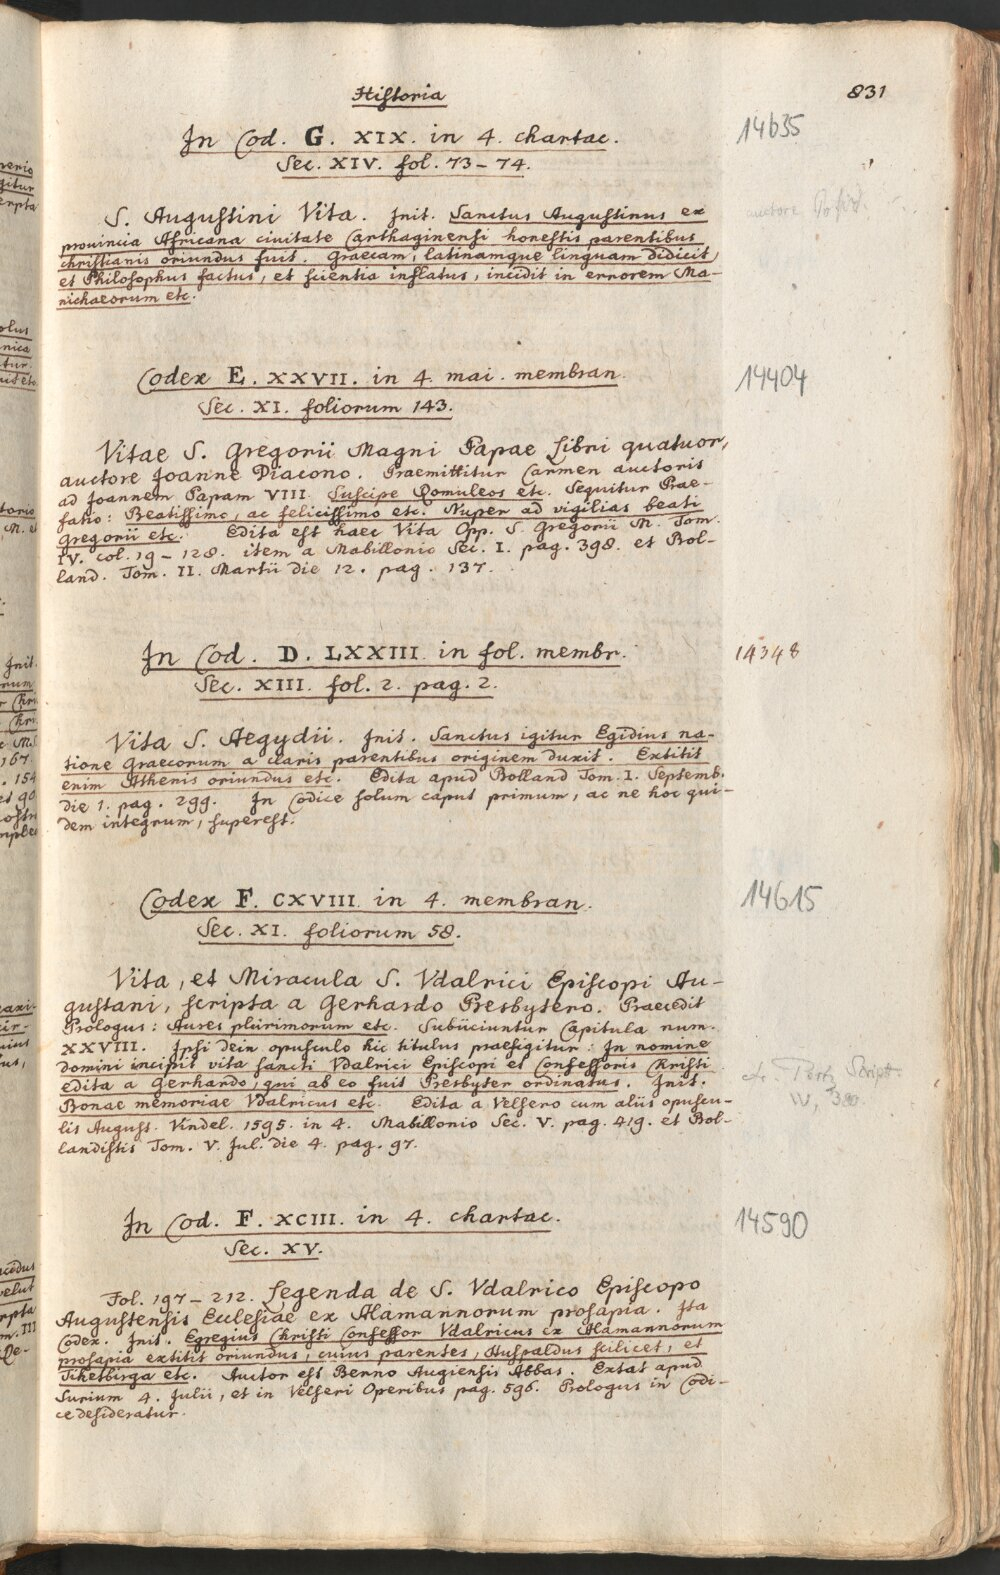 Historia
831
In Cod. G. XIX. in 4. chartac.
14635
Sec. XIV. fol. 73-74.
S. Augustini Vita. Init. Sanctus Augustinus ex
auctore
prouincia Africana ciuitate Carthaginensi honestis parentibus
christianis oriundus fuit. Graecam, latinamque linguam didicit,
et Philosophus factus, et scientia inflatus, incidit in errorem Ma-
nichaeorum etc.
Codex E. XXVII. in 4. mai. membran.
14404
Sec. XI. foliorum 143.
Vitae S. Gregorii Magni Papae Libri quatuor,
auctore Joanne Diacono. Praemittitur Carmen auctoris
ad Joannem Papam VIII. Suscipe Romuleos etc. Sequitur Prae-
fatio: Beatissimo, ac felicissimo etc. Nuper ad vigilias beati
Gregorii etc. Edita est haec Vita Opp. S. Gregorii M. Tom.
IV. col. 19-128. item a Mabillonio Sec. I. pag. 398. et Bol-
land. Tom. II. Martii die 12. pag. 137.
In Cod. D. LXXIII. in fol. membr.
14348
Sec. XIII. fol. 2. pag. 2.
Vita S. Aegydii. Init. Sanctus igitur Egidius na-
tione Graecorum a claris parentibus originem duxit. Extitit
enim Athenis oriundus etc. Edita apud Bolland Tom. I. Septemb.
die 1. pag. 299. In Codice solum caput primum, ac ne hoc qui-
dem integrum, superest.
Codex F. CXVIII. in 4. membran.
14615
Sec. XI. foliorum 58.
Vita, et Miracula S. Vdalrici Episcopi Au-
gustani, scripta a Gerhardo Presbytero. Praecedit
Prologus: Aures plurimorum etc. Subiiciuntur Capitula num.
XXVIII. Ipsi dein opusculo hic titulus praefigitur: In nomine
Domini incipit vita sancti Vdalrici Episcopi et Confessoris Christi
edita a Gerhardo, qui ab eo fuit Presbyter ordinatus. Init.
cf. Pertz Script.
IV, 380.
Bonae memoriae Vdalricus etc. Edita a Velsero cum aliis opuscu-
lis August. Vindel. 1595. in 4. Mabillonio Sec. V. pag. 419. et Bol-
landistis Tom. V. Jul. die 4. pag. 97.
In Cod. F. XCIII. in 4. chartac.
14590
Sec. XV.
Fol. 197-212. Legenda de S. Vdalrico Episcopo
Augustensis Eculesiae ex Alamannorum prosapia. Ita
Codex. Init. Egregius Christi Confessor Vdalricus ex Alamannorum
prosapia extitit oriundus, cuius parentes, Huspaldus scilicet, et
Thetbirga etc. Auctor est Benno Augiensis Abbas. Extat apud
Surium 4. Julii, et in Velseri Operibus pag. 596. Prologus in Codi-
ce desideratur.